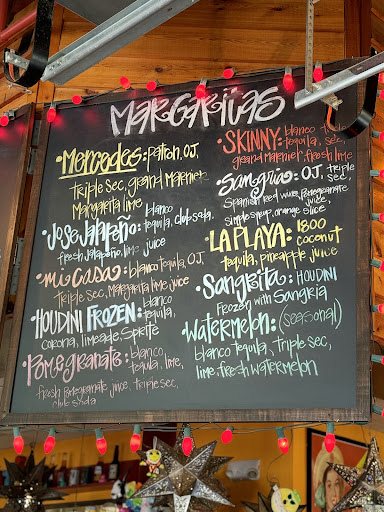 MARGARITAS
•Mercedes: patron, O.J.
Triple Sec, grand Marnier
Margarita lime
•JOSE JALAPEÑO: blanco
tequila, club soda,
fresh jalapeño, lime juice
•mi Casa: blanco tequila, O.J.
triple sec, Margarita lime juice
•HOUDINI FROZEN: blanco
tequila,
corona, limeade, Sprite
•Pomegranate: blanco
tequila, lime,
fresh pomegranate juice, triple sec,
club soda
•SKINNY: blanco
tequila, sec,
grand marnier, fresh lime
•Sangria: O.J., triple
sec,
Spanish Red wine, Pomegranate
juice,
simple syrup, orange slice
•LA PLAYA: 1800
coconut
tequila, pineapple juice
•Sangrita: HOUDINI
Frozen with Sangria
•Watermelon: (seasonal)
blanco tequila, triple sec,
lime, fresh watermelon